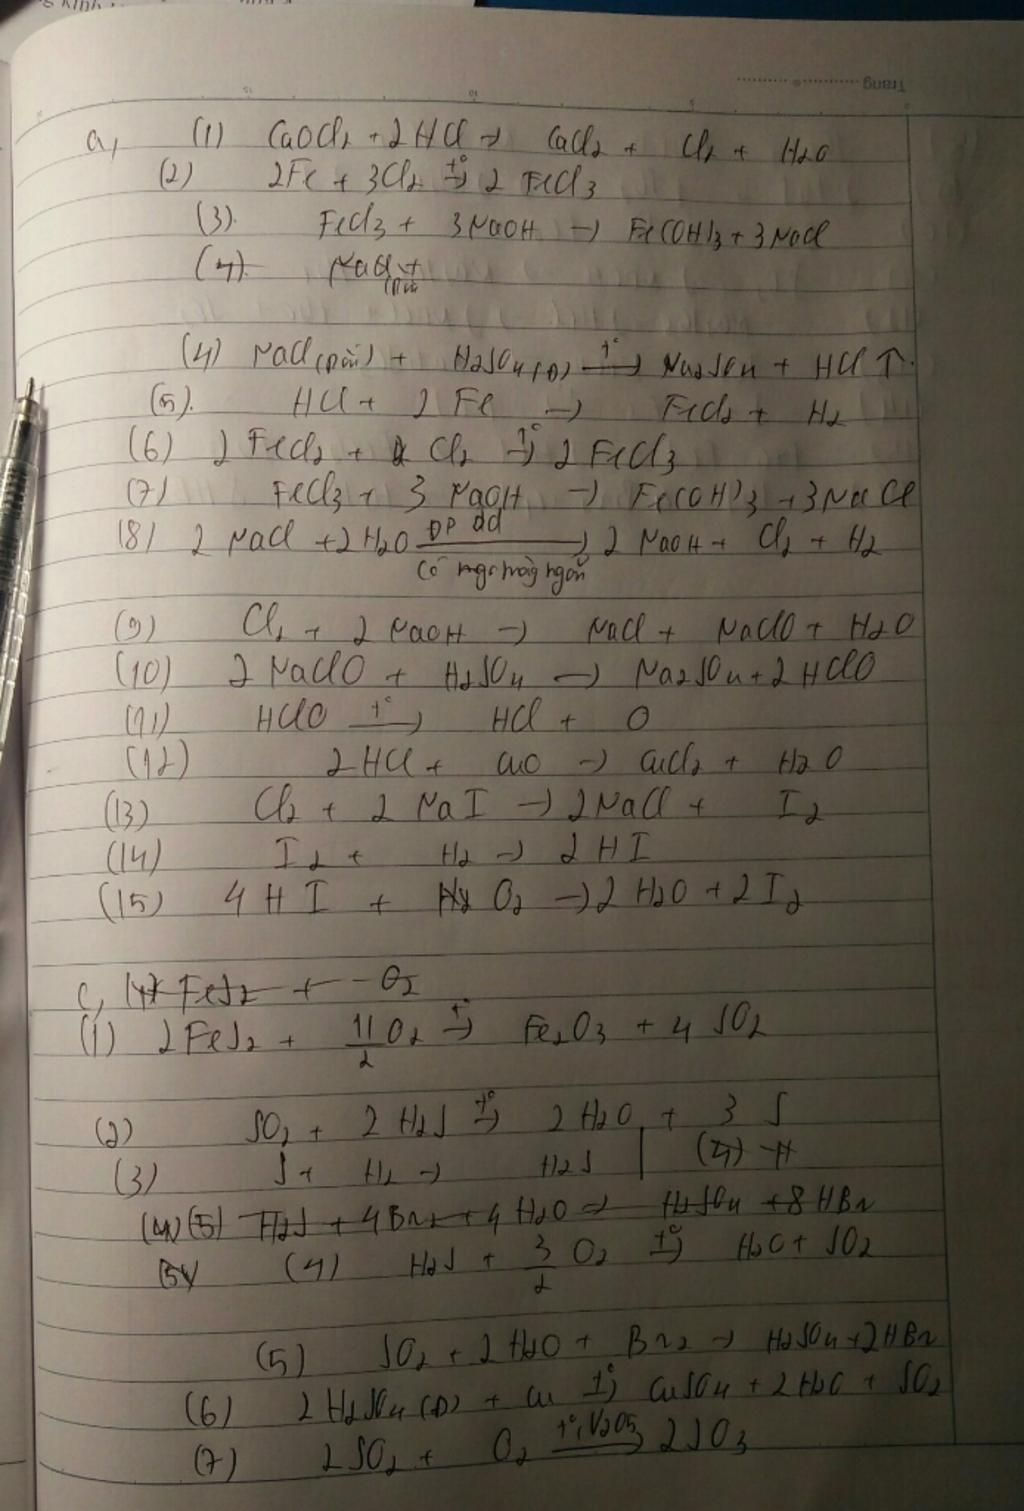 Trang
a, (1) CaOCl2 + 2HCl → CaCl2 + Cl2 + H2O
(2) 2Fe + 3Cl2 t°→ 2 FeCl3
(3). FeCl3 + 3NaOH → Fe(OH)3 + 3NaCl
(4). NaCl +
(4) NaCl(rắn) + H2SO4(Đ) t°→ Na2SO4 + HCl ↑.
(5). HCl + 2 Fe → FeCl2 + H2
(6) 2 FeCl2 + Cl2 t°→ 2 FeCl3
(7) FeCl3 + 3 NaOH → Fe(OH)3 + 3NaCl
(8) 2 NaCl + 2H2O ĐP dd → 2 NaOH + Cl2 + H2
Có màng ngăn
(9) Cl2 + 2 NaOH → NaCl + NaClO + H2O
(10) 2 NaClO + H2SO4 → Na2SO4 + 2 HClO
(11) HClO t°→ HCl + O
(12) 2HCl + CuO → CuCl2 + H2O
(13) Cl2 + 2 NaI → 2NaCl + I2
(14) I2 + H2 → 2HI
(15) 4 HI + O2 → 2 H2O + 2 I2
c, (4) FeS2 + O2
(1) 2FeS2 + 11/2 O2 t°→ Fe2O3 + 4 SO2
(2) SO2 + 2 H2S t°→ 2 H2O + 3 S
(3) S + H2 → H2S | (4) H
(4) (5) H2S + 4Br2 + 4 H2O → H2SO4 + 8 HBr
(5) (4) H2S + 3/2 O2 t°→ H2O + SO2
(5) SO2 + 2 H2O + Br2 → H2SO4 + 2HBr
(6) 2 H2SO4 (Đ) + Cu t°→ CuSO4 + 2 H2O + SO2
(7) 2SO2 + O2 t°, V2O5→ 2SO3